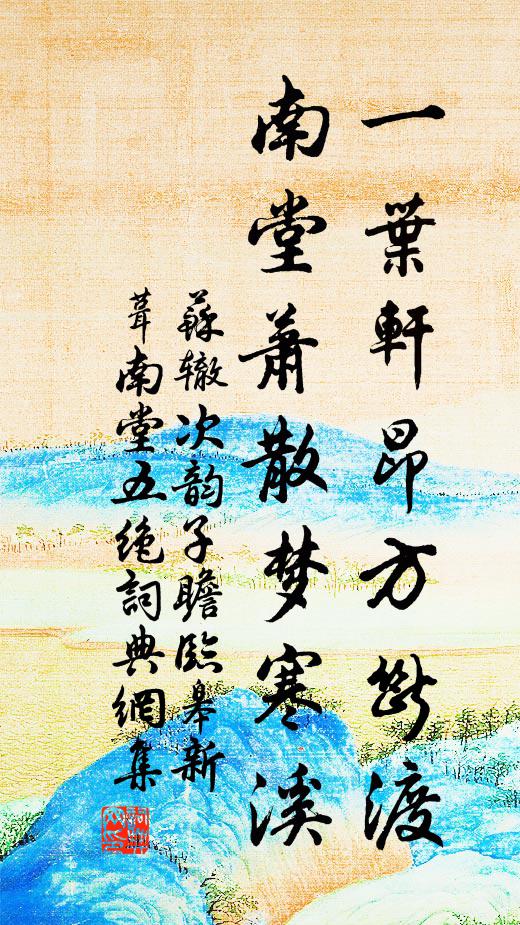 一葉軒昂方断渡
南堂蕭散梦寒溪
蘇辙次韵子瞻臨皋新
葺南堂五绝詞典網集